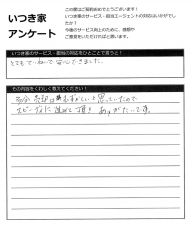 いつき家
アンケート
この度はご契約おめでとうございます！
いつき家のサービス・担当エージェントの対応はいかがでし
たか？
今後のサービス向上のために、感想や
ご意見をいただければと思います。
いつき家のサービス・担当の対応をひとことで言うと！
とてもていねいで安心できました。
その内容をくわしく教えてください！
売却はむずかしいと思っていたので
スピーディに進めて頂き ありがたいです。